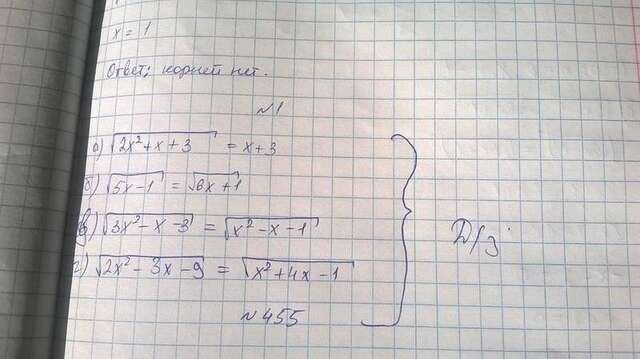 x = 1
Ответ: корней нет.
№1
а) √(2x²+x+3) = x+3
б) √(5x-1) = √(8x+1)
в) √(3x²-x-3) = √(x²-x-1)
г) √(2x²-3x-9) = √(x²+4x-1)
Д/з.
№455